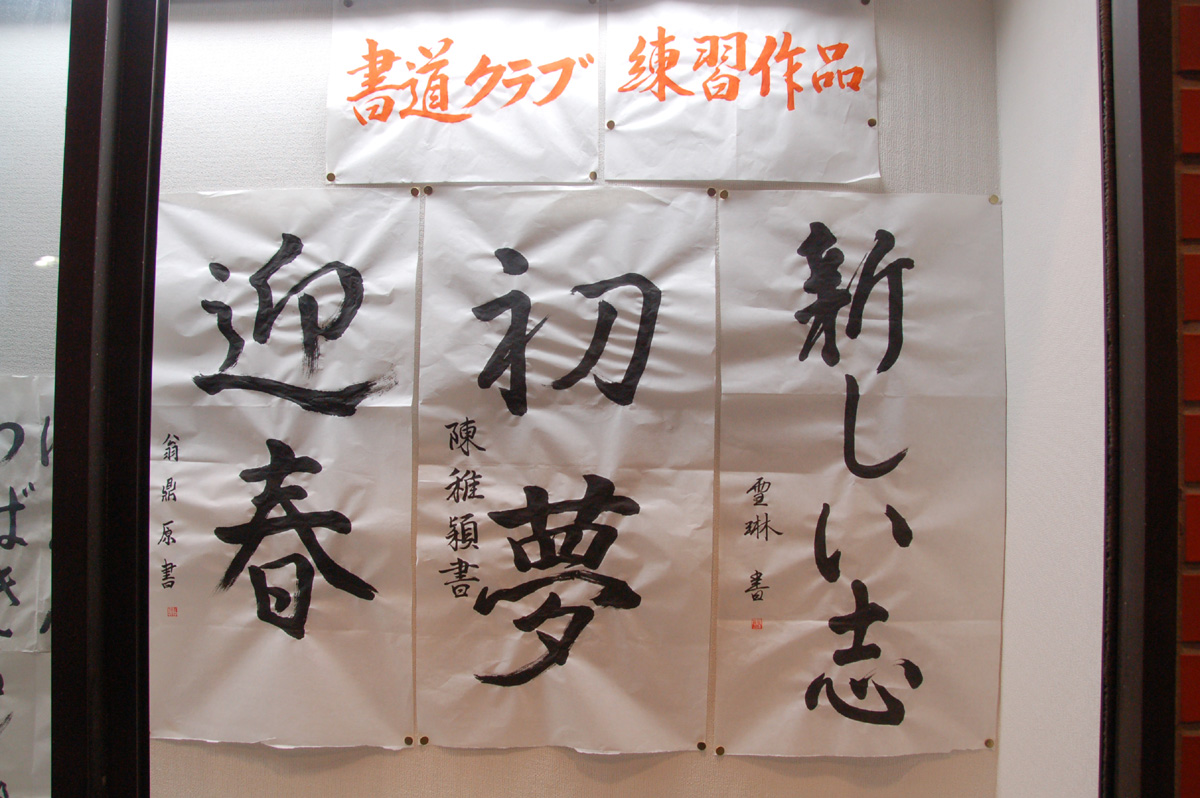 書道クラブ 練習作品
新しい志
雪琳 書
初夢
陳稚穎書
迎春
翁鼎原書
つばき